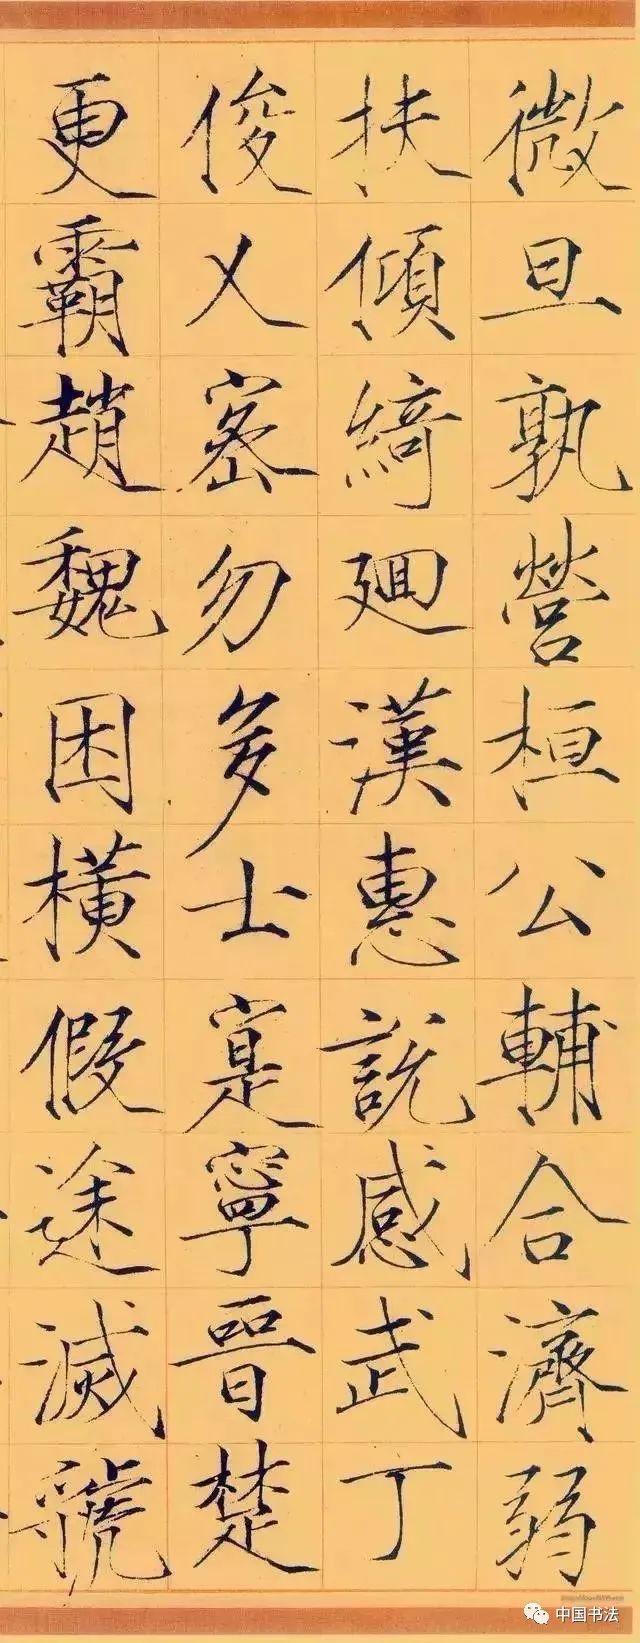 微旦孰營桓公輔合濟弱
扶傾綺迴漢惠說感武丁
俊乂密勿多士寔寧晉楚
更霸趙魏困橫假途滅虢
中国书法